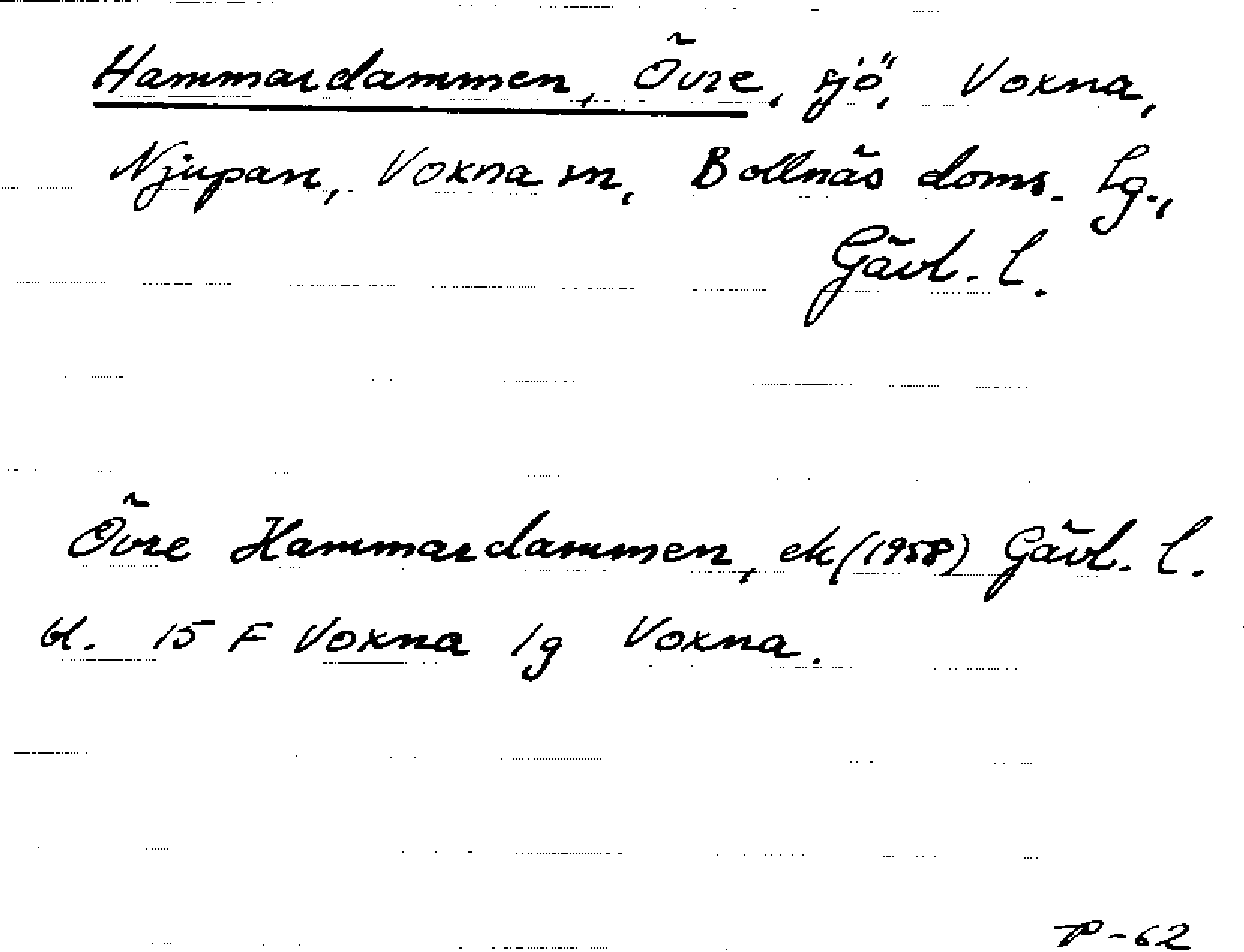 Hammardammen, Övre, sjö, Voxna,
Njupan, Voxna sn, Bollnäs doms. lg.,
Gävl. l.
Övre Hammardammen, ek (1958) Gävl. l.
bl. 15 F Voxna 1g Voxna.
P-62